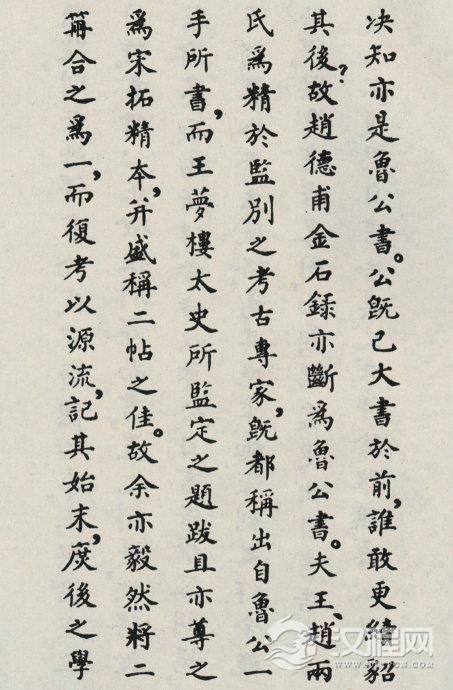 决知亦是魯公書。公既已大書於前，誰敢更續貂
其後？故趙德甫金石録亦斷爲魯公書。夫王、趙兩
氏爲精於監別之考古專家，既都稱出自魯公一
手所書，而王夢樓太史所監定之題跋且亦尊之
爲宋拓精本，并盛稱二帖之佳。故余亦毅然將二
冊合之爲一，而復考以源流，記其始末，庶後之學
文程网